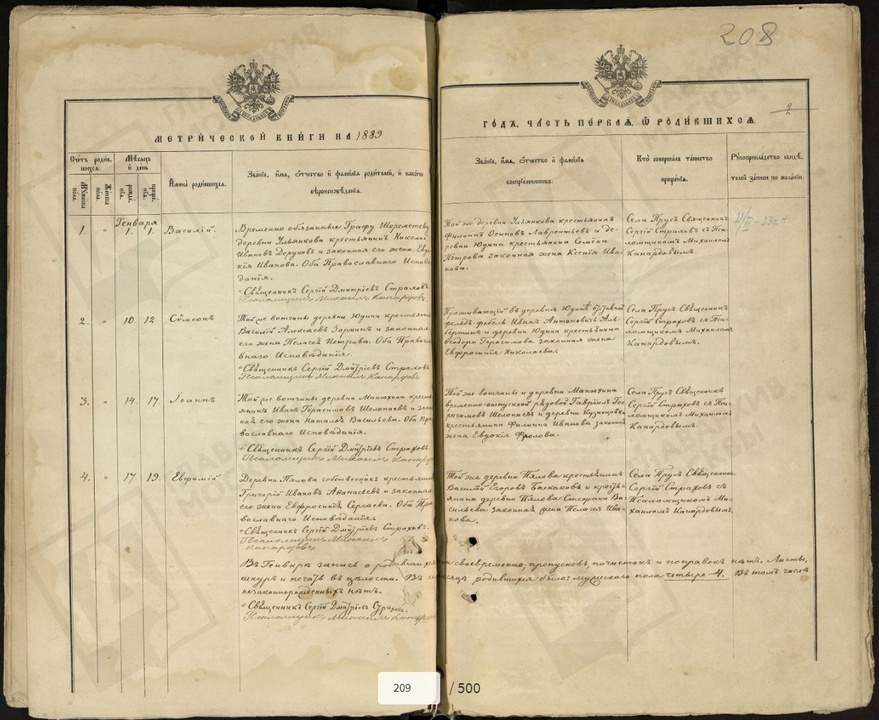 208
2
МЕТРИЧЕСКОЙ КНИГИ НА 1889
ГОДЪ, ЧАСТЬ ПЕРВАЯ, Ѿ РОДИВШИХСЯ
Счетъ родив-
шихся.
Мужеска пола.
Женска пола.
Мѣсяцъ
и день
рожде-
нія.
креще-
нія.
Имена родившихся.
Званіе, имя, отчество и фамилія родителей, и какого
вѣроисповѣданія.
Званіе, имя, отчество и фамилія
воспріемниковъ.
Кто совершалъ таинство
крещенія.
Рукоприкладство свидѣ-
телей записи по желанію.
Генваря
1. " 1. 1. Василій.
Временно обязанные Графу Шереметеву
деревни Ульянкова крестьянинъ Николай
Ивановъ и законная его жена Евдо-
кія Иванова. Оба Православнаго Испов-
данія.
Священникъ Сергій Дмитріевъ Страховъ
Псаломщикъ Михаилъ Канардовъ
Той же деревни Ульянкова крестьянинъ
Филиппъ Осиповъ Лаврентьевъ и де-
ревни Юдина крестьянина Семена
Петрова законная жена Ксенія Ива-
нова.
Села Прусъ Священникъ
Сергій Страховъ съ Пса-
ломщикомъ Михаиломъ
Канардовымъ.
2. " 10. 12 Сѵмеонъ
Той же вотчины деревни Юдина крестьянинъ
Василій Алексѣевъ и законная
его жена Пелагея Петрова. Оба Право-
внаго Исповѣданія.
Священникъ Сергій Дмитріевъ Страховъ
Псаломщикъ Михаилъ Канардовъ
Проживающій въ деревнѣ Юдинѣ
фельдфебель Иванъ Антоновичъ
и деревни Юдина крестьянина
Ѳеодора Герасимова законная жена
Евфросинія Николаева.
Села Прусъ Священникъ
Сергій Страховъ съ Пса-
ломщикомъ Михаиломъ
Канардовымъ.
3. " 14. 17. Іоаннъ
Той же вотчины деревни Манюхина кресть-
янинъ Иванъ Герасимовъ Шелопаевъ и закон-
ная его жена Наталья Васильева. Оба Пра-
вославнаго Исповѣданія.
Священникъ Сергій Дмитріевъ Страховъ
Псаломщикъ Михаилъ Канардовъ
Той же вотчины и деревни Манюхина
временно-отпускной рядовой Гавріилъ Ге-
расимовъ Шелопаевъ и деревни Кузнецовой
крестьянина Филиппа Иванова законная
жена Евдокія Фролова.
Села Прусъ Священникъ
Сергій Страховъ съ Пса-
ломщикомъ Михаиломъ
Канардовымъ.
4. " 17. 19. Евфимій
Деревни Пялова собственникъ крестьянинъ
Григорій Ивановъ Аванасьевъ и законная
его жена Евфросинія Сергеева. Оба Пра-
вославнаго Исповѣданія
Священникъ Сергій Дмитріевъ Страховъ.
Псаломщикъ Михаилъ
Канардовъ
Той же деревни Пялова крестьянинъ
Василій Егоровъ Баскаковъ и кресть-
янина деревни Пялова Стефана Ва-
сильева законная жена Пелагея Ива-
нова.
Села Прусъ Священникъ
Сергій Страховъ съ
Псаломщикомъ Ми-
хаиломъ Канардовымъ.
Въ Генварѣ записъ о родившихся своевременно, пропусковъ, почистокъ и поправокъ нѣтъ. Листы,
шнуръ и печать въ цѣлости. Въ мѣсяцъ родившихся было: мужескаго пола четверо 4. Въ томъ числѣ
незаконнорожденныхъ нѣтъ.
Священникъ Сергій Дмитріевъ Страховъ.
Псаломщикъ Михаилъ Канардовъ
209 / 500